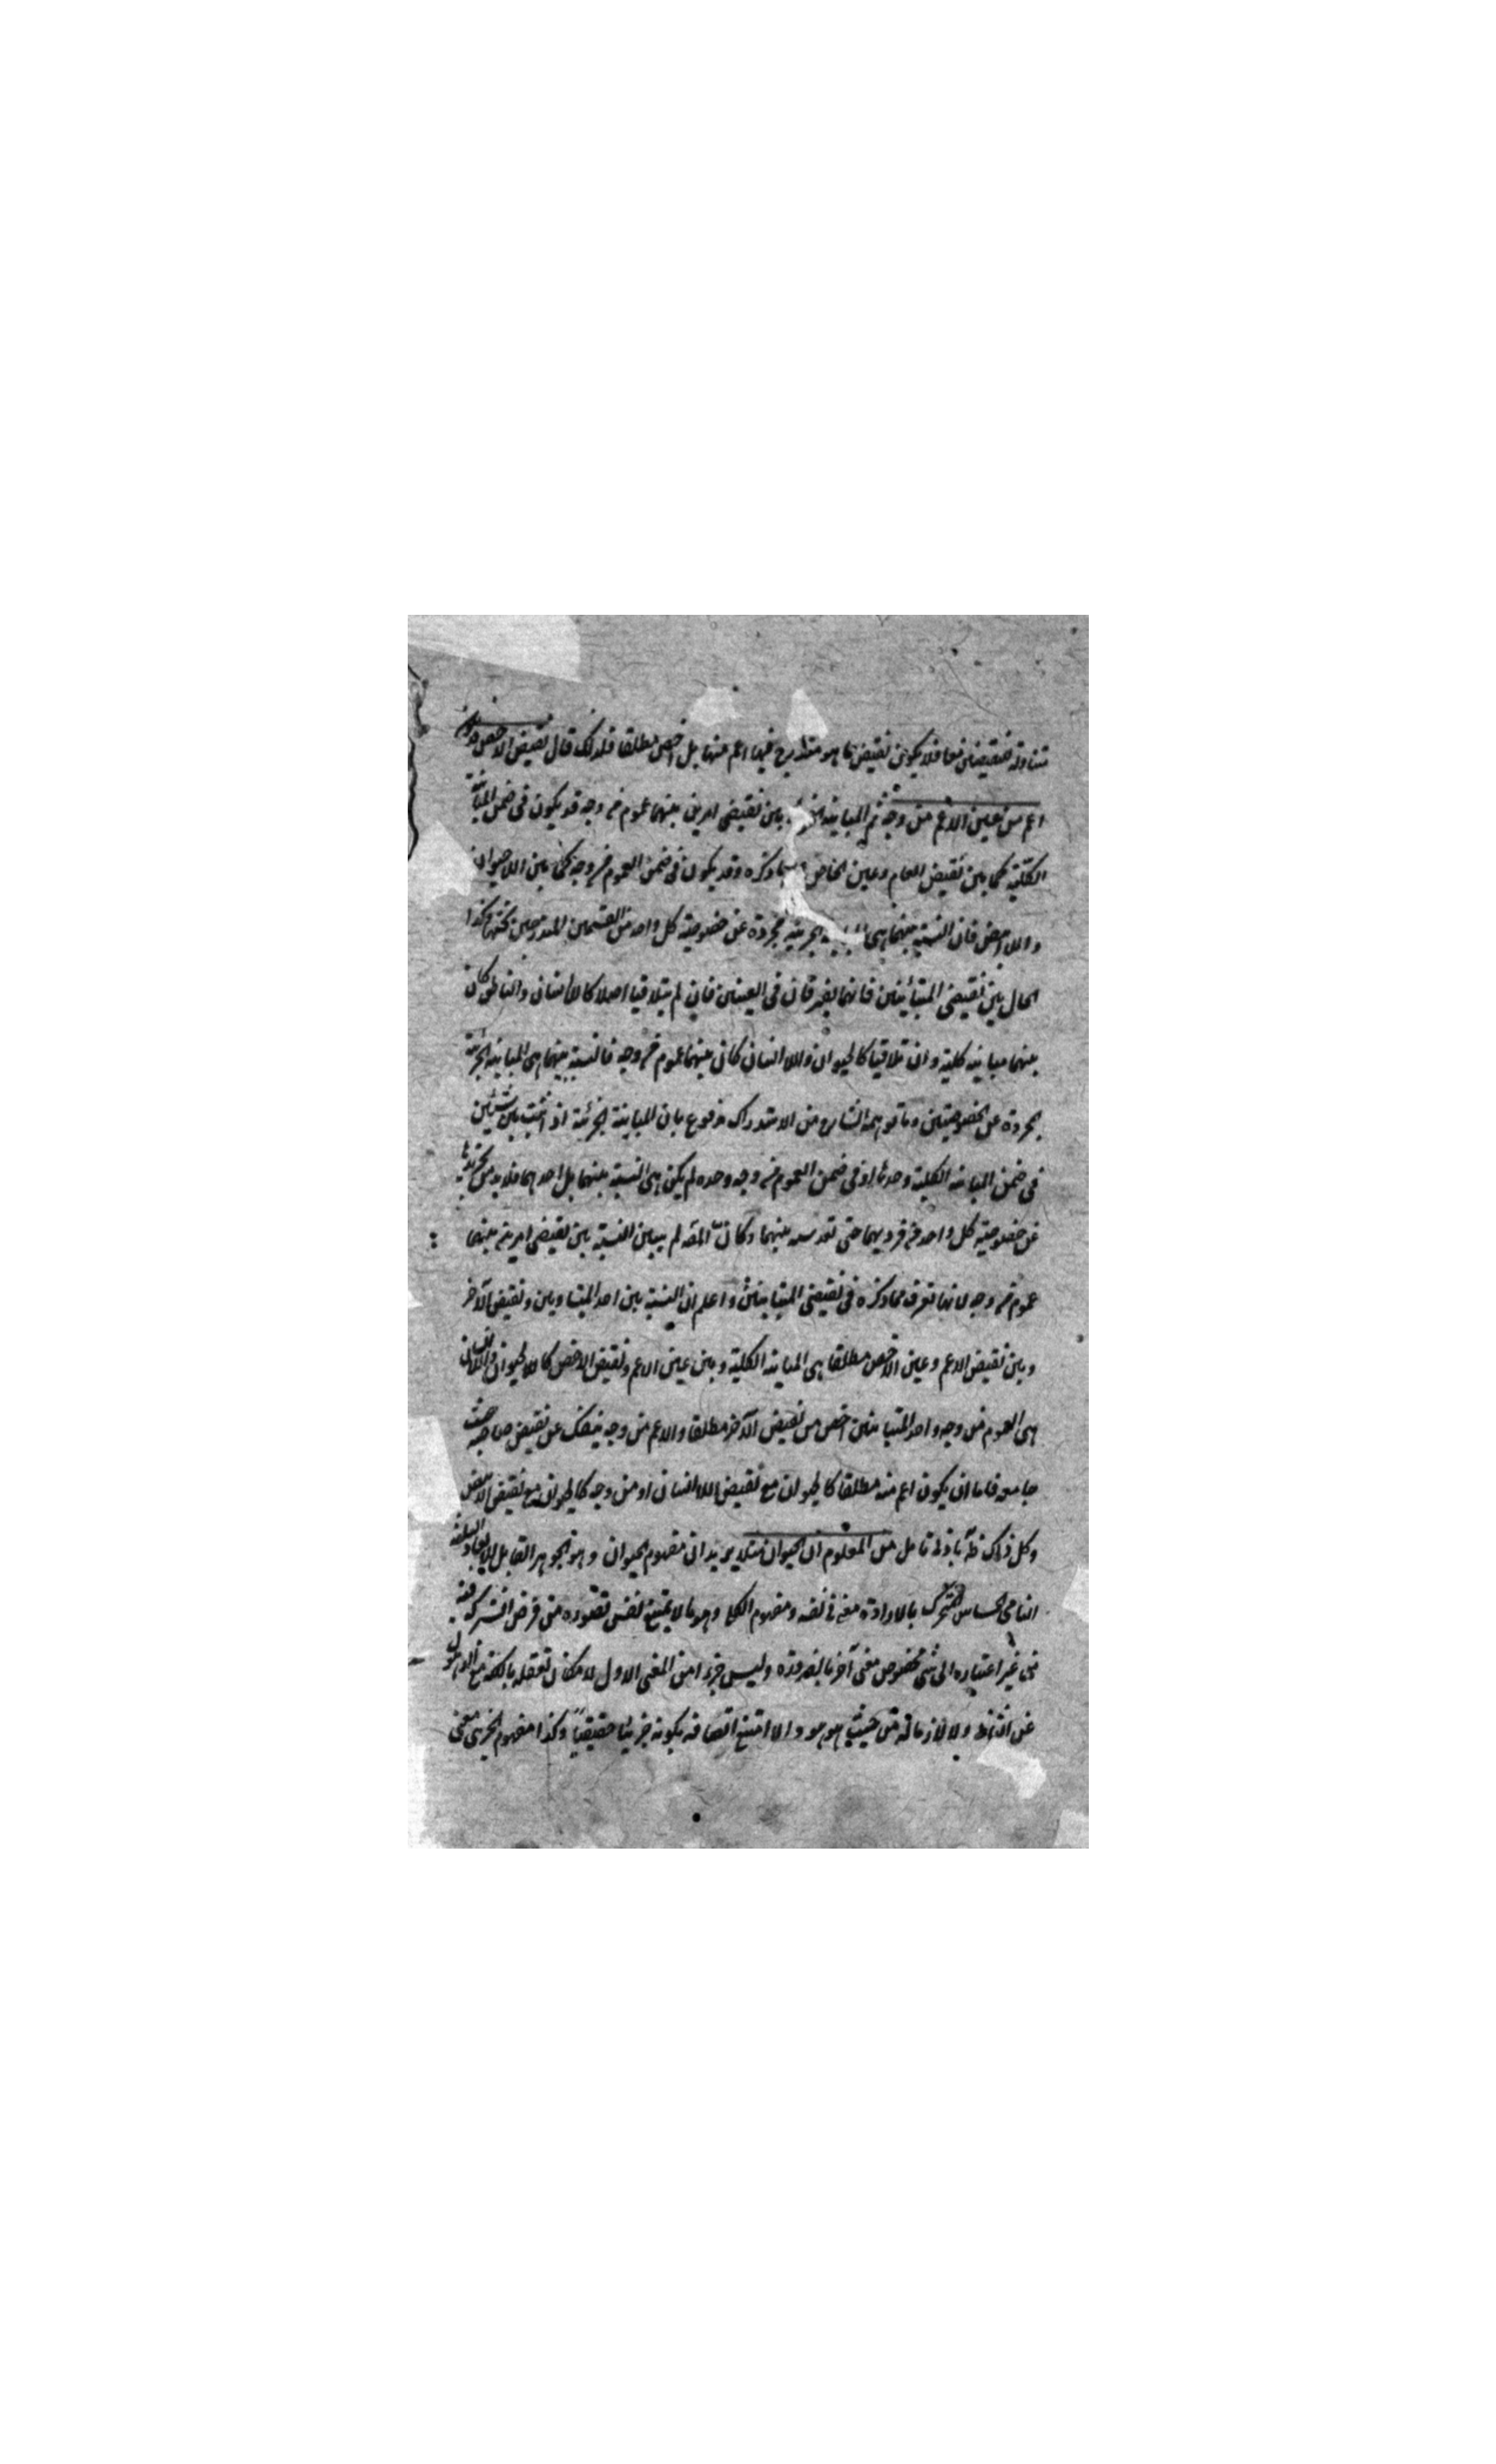 تتناوله نقيضاهما فلا يكون نقيض ما هو مندرج فيها اعم منها بل اخص مطلقا فلذلك قال نقيض الاخص
اعم من عين الاعم من وجه ثم المباينة بين نقيضي امرين بينهما عموم من وجه قد يكون في ضمن المباينة
الكلية كما بين نقيض العام وعين الخاص ذكره وقد يكون في ضمن العموم من وجه كما بين اللاحيوان
واللاابيض فان النسبة بينهما هي الجزئية مجردة عن خصوصية كل واحد من القسمين المندرجين تحتها وكذا
الحال بين نقيضي المتبائنين فانهما يفترقان في العينين فان لم يتلاقيا اصلا كالاانسان والناطق كان
بينهما مباينة كلية وان تلاقيا كالحيوان واللاانسان كان بينهما عموم من وجه فالنسبة بينهما هي المباينة الجزئية
مجردة عن الخصوصيتين وما توهمه الشارح من الاستدراك مدفوع بان المباينة الجزئية اذ اثبت بين شيئين
في ضمن المباينة الكلية وحدها او في ضمن العموم من وجه وحده لم يكن هي النسبة بينهما بل احدهما فلا بد من تجريدها
عن خصوصية كل واحد من فرديهما حتى بينهما وكان المصـ لم يبين النسبة بين نقيضي امرين بينهما
عموم من وجه لانها تعرف مما ذكره في نقيضي المتباينين واعلم ان النسبة بين احد المتساويين ونقيض الآخر
وبين نقيض الاعم وعين الاخص مطلقا هي المباينة الكلية وبين عين الاعم ونقيض الاخص كالحيوان واللاانسان
هي العموم من وجه واحد المتباينين اخص من نقيض الآخر مطلقا والاعم من وجه ينفك عن نقيض صاحبه حيث
جامعه فاما ان يكون اعم منه مطلقا كالحيوان مع نقيض اللاانسان او من وجه كالحيوان مع نقيض الابيض
وكل ذلك ظـ بادنى تامل من المعلوم ان الحيوان مثلا يريد ان مفهوم الحيوان وهو الجوهر القابل للابعاد الثلثة
النامي الحساس المتحرك بالارادة معنى في نفسه ومفهوم الكلي وهو ما لا يمتنع نفس تصوره من فرض الشركة فيه
من غير اعتباره الى شئ مخصوص معنى آخر بالضرورة وليس جزءا من المعنى الاول لامكان تعقله بالكنه مع الذهول
عن الثاني ولا لازما له من حيث هو هو والا امتنع اتصافه بكونه جزئيا حقيقيا وكذا مفهوم الجزئي معنى